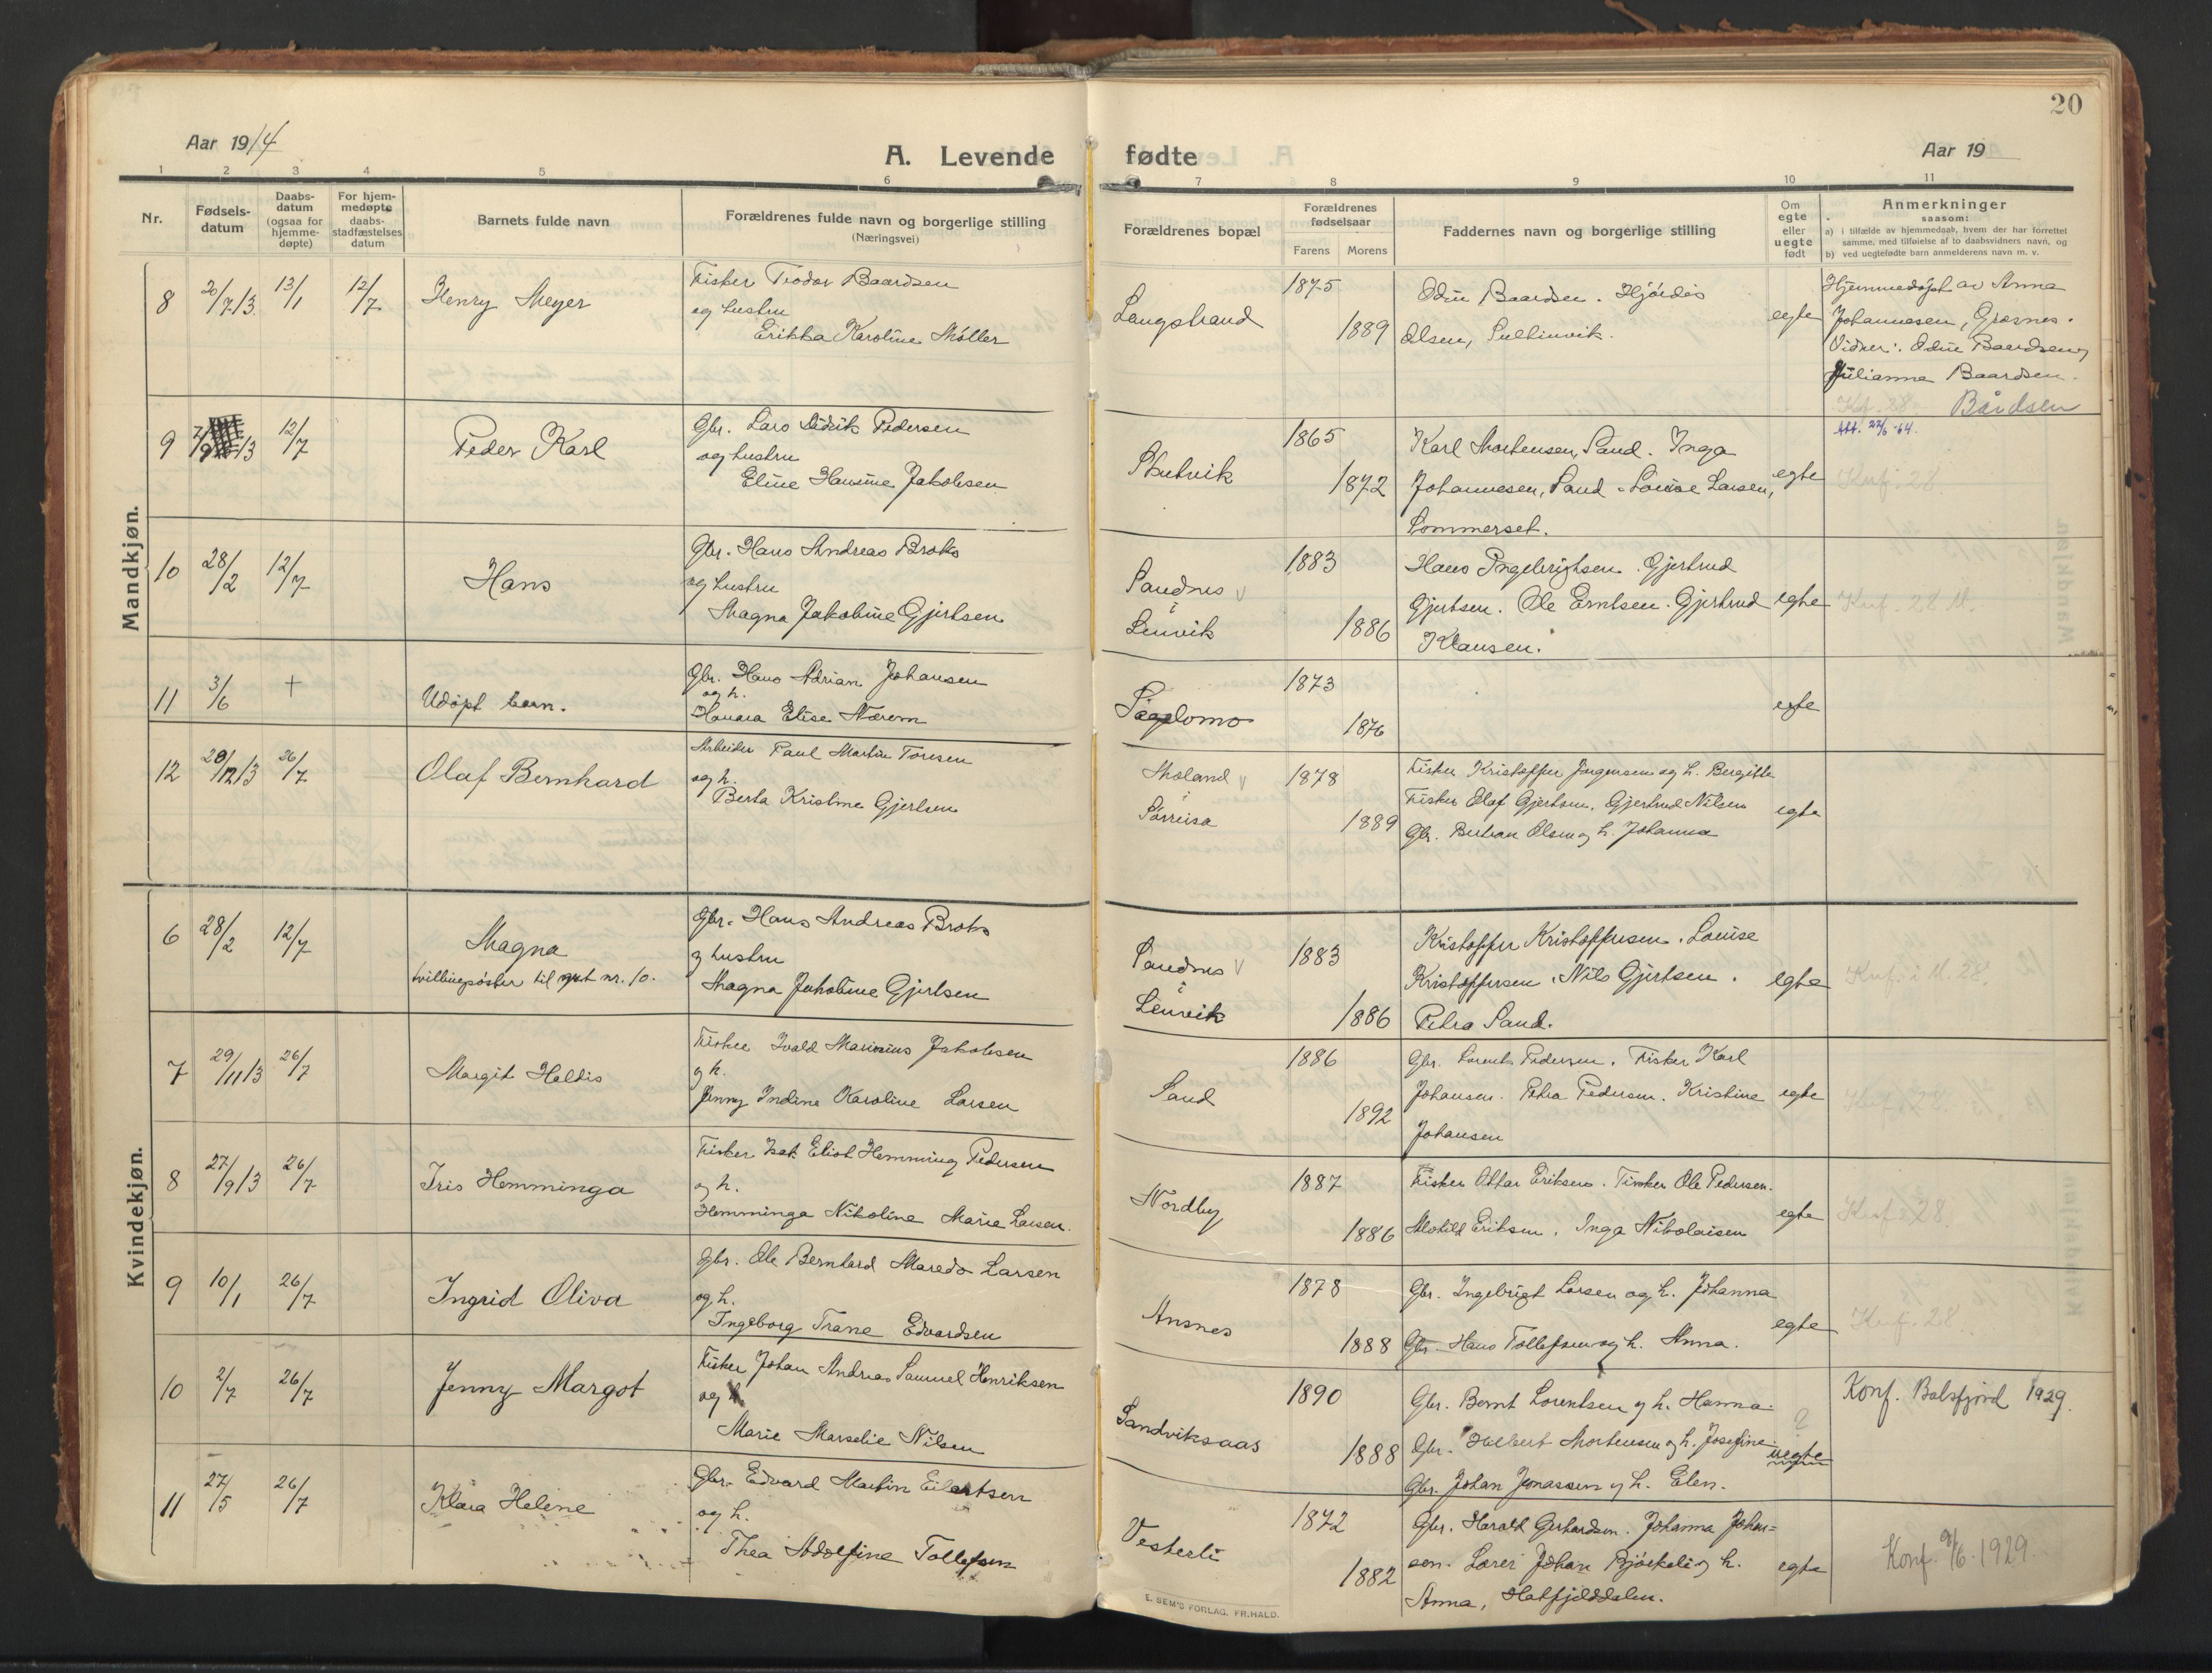 20
Aar 1914
A. Levende fødte
Aar 19
1 2 3 4 5 6 7 8 9 10 11
Nr.
Fødsels-
datum
Daabs-
datum
(ogsaa for
hjemme-
døpte)
For hjem-
medøpte
daabs-
stadfæstelses
datum
Barnets fulde navn
Forældrenes fulde navn og borgerlige stilling
(Næringsvei)
Forældrenes bopæl
Forældrenes
fødselsaar
Farens Morens
Faddernes navn og borgerlige stilling
Om
egte
eller
uegte
født
Anmerkninger
saasom:
a) i tilfælde av hjemmedaab, hvem der har forrettet
samme, med tilføielse af to daabsvidners navn, og
b) ved uegtefødte barn anmelderens navn m. v.
Mandkjøn.
8 20/7 13 13/1 12/7
Henry Meyer
Fisker Teodor Baardsen
og hustru
Erikka Karoline Møller
Langstrand
1875
1889
Odin Baardsen. Hjördis
Olsen, Sultinvik.
egte
Hjemmedøpt av Anna
Johannesen, Græsnes.
Vidner: Odin Baardsen,
Julianna Baardsen.
Kf. 28. Bårdsen
Att. 22/6-64.
9 2/9 13 12/7
Peder Karl
Gbr. Lars Didrik Pedersen
og hustru
Eline Hansine Jakobsen
Skutvik
1865
1872
Karl Mortensen, Sand. Inga
Johannesen, Sand. Louise Larsen,
Sommerset.
egte
Knf. 28.
10 28/2 12/7
Hans
Gbr. Hans Andreas Broks
og hustru
Magna Jakobine Gjertsen
Sandnes v
i
Lenvik
1883
1886
Hans Ingebrigtsen. Gjertrud
Gjertsen. Ole Erntsen. Gjertrud
Klausen.
egte
Knf. 28 M.
11 3/6 +
Udøpt barn.
Gbr. Hans Adrian Johansen
og h.
Hanna Elise Nærem
1873
1876
egte
12 29/12 13 26/7
Olaf Bernhard
Arbeider Paul Martin Toresen
og h.
Berta Kristine Gjertsen
Moland v
i
Sørreisa
1878
1889
Fisker Kristoffer Jørgensen og h. Bergitte
Fisker Olaf Gjertsen. Gjertrud Nilsen
Gbr. Bertran Olsen og h. Johanna
egte
Kvindekjøn.
6 28/2 12/7
Magna
tvillingsøster til gut nr. 10.
Gbr. Hans Andreas Broks
og hustru
Magna Jakobine Gjertsen
Sandnes v
i
Lenvik
1883
1886
Kristoffer Kristoffersen. Louise
Kristoffersen. Nils Gjertsen.
Petra Sand.
egte
Knf. i M. 28.
7 29/11 13 26/7
Margit Haldis
Fisker Ivald Marinius Jakobsen
og h.
Jenny Indine Karoline Larsen
Sand
1886
1892
Gbr. Lorents Pedersen. Fisker Karl
Johansen. Petra Pedersen. Kristine
Johansen
egte
Knf. 28.
8 27/9 13 26/7
Iris Hemminga
Fisker Isak Eliot Hemming Pedersen
og h.
Hemminga Nikoline Marie Larsen.
Nordby
1887
1886
Fisker Ottar Eriksen. Fisker Ole Pedersen.
Alvhild Eriksen. Inga Nikolaisen
egte
Knf. 28.
9 10/1 26/7
Ingrid Oliva
Gbr. Ole Bernhard Maredo Larsen
og h.
Ingeborg Trane Edvardsen
Ansnes
1878
1888
Gbr. Ingebrigt Larsen og h. Johanna
Gbr. Hans Tollefsen og h. Anna.
egte
Knf. 28
10 2/7 26/7
Jenny Margot
Fisker Johan Andreas Samuel Henriksen
og
Marie Marselie Nilsen
Sandviksaas
1890
1888
Gbr. Bernt Lorentsen og h. Hanna.
Gbr. Helbert Mortensen og h. Josefine.
Gbr. Johan Jonassen og h. Elen.
?
uegte
Konf. Balsfjord 1929.
11 27/5 26/7
Klara Helene
Gbr. Edvard Martin Eilertsen
og h.
Thea Adolfine Tollefsen
Vesterli
1872
1882
Gbr. Harald Gerhardsen. Johanna Johan=
sen. Lærer Johan Bjørkeli og h.
Anna, Hatfjelddalen.
egte
Konf. 9/6. 1929.
E. SEM'S FORLAG, FR.HALD.